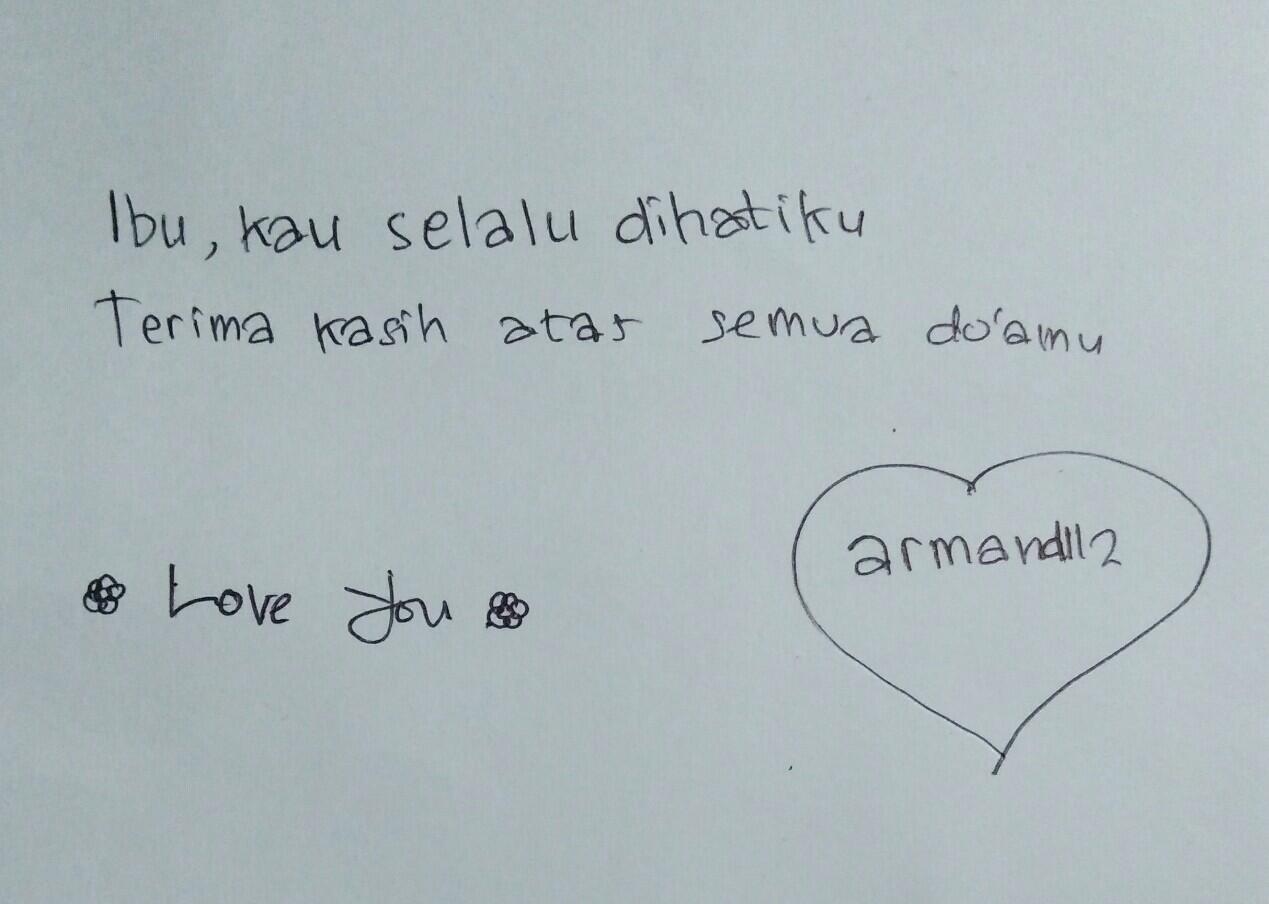 Ibu, kau selalu dihatiku
Terima kasih atas semua do'amu
Love You
armand112